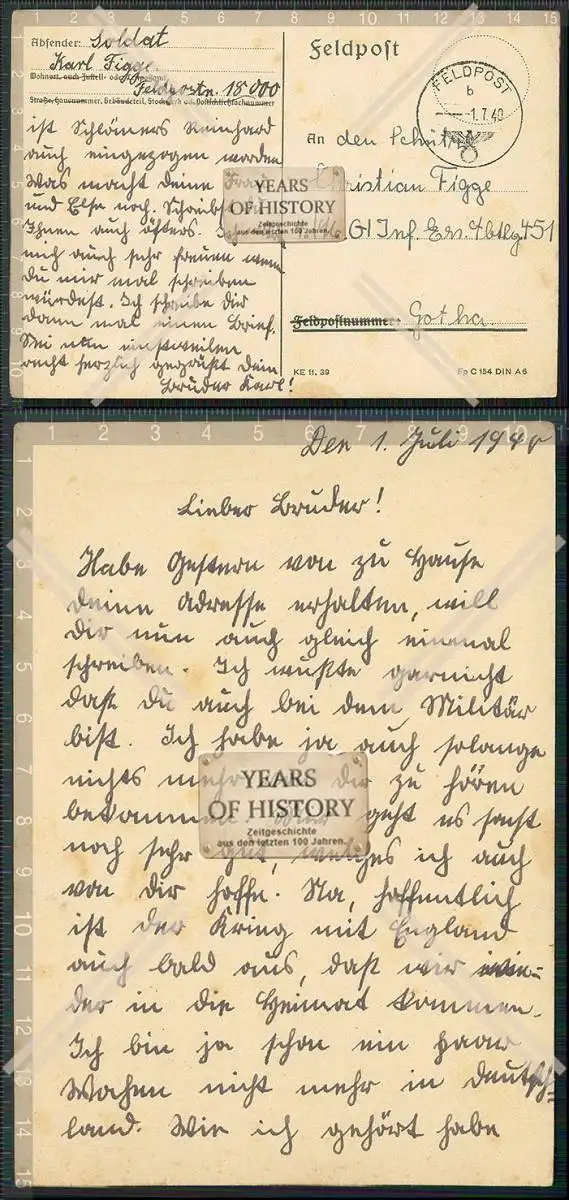 Absender: Soldat
Karl Figge.
Wohnort, auch Zustell- oder
Feldpostn. 18000
Straße, Hausnummer, Gebäudeteil, Stockwerk od. Postschließfachnummer
ist Schlömers Reinhard
auch eingezogen worden
Was macht deine Frau
und Else noch. Schreibst
Ihnen auch öfters.
mich auch sehr freuen wenn
du mir mal schreiben
würdest. Ich schreibe Dir
dann mal einen Brief.
Sei nun einstweilen
recht herzlich gegrüßt dein
Bruder Karl!
Feldpost
FELDPOST
b
-1.7.40
An den Schütz
Christian Figge
Inf. Ers. Abtlg 451
Feldpostnummer: Gotha.
KE 11. 39
Fp C 154 DIN A 6
YEARS
OF HISTORY
Zeitgeschichte
aus den letzten 100 Jahren.
Den 1. Juli 1940
Lieber Bruder!
Habe Gestern von zu Hause
deine Adresse erhalten, will
dir nun auch gleich einmal
schreiben. Ich wußte garnicht
daß du auch bei dem Militär
bist. Ich habe ja auch solange
nichts mehr von dir zu hören
bekommen. geht es sonst
noch sehr gut, welches ich auch
von dir hoffe. Na, hoffentlich
ist der Krieg mit England
auch bald aus, daß wir wie=
der in die Heimat kommen.
Ich bin ja schon ein paar
Wochen nicht mehr in Deutsch=
land. Wie ich gehört habe
YEARS
OF HISTORY
Zeitgeschichte
aus den letzten 100 Jahren.